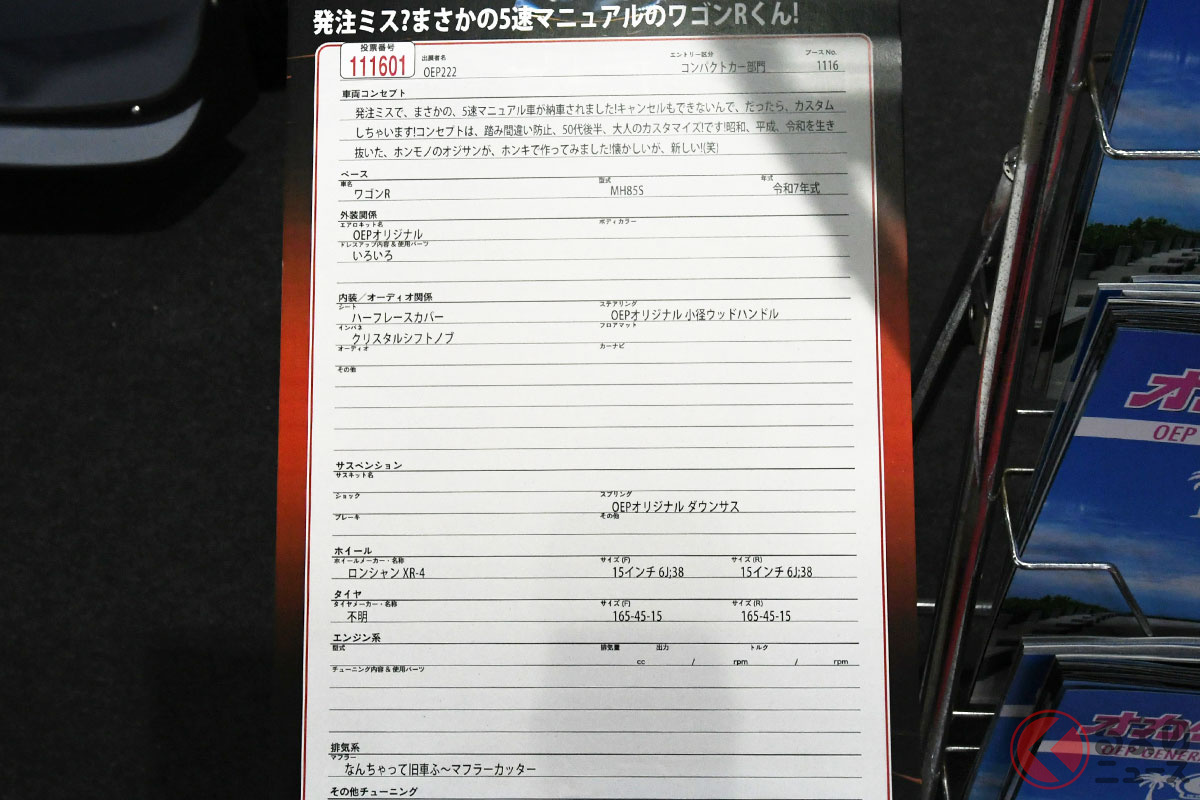 発注ミス?まさかの5速マニュアルのワゴンRくん!
投票番号
111601
出展者名
OEP222
エントリー区分
コンパクトカー部門
ブースNo.
1116
車両コンセプト
発注ミスで、まさかの、5速マニュアル車が納車されました!キャンセルもできないんで、だったら、カスタム
しちゃいます!コンセプトは、踏み間違い防止、50代後半、大人のカスタマイズ!です!昭和、平成、令和を生き
抜いた、ホンモノのオジサンが、ホンキで作ってみました!懐かしいが、新しい!(笑)
ベース
車名 型式 年式
ワゴンR MH85S 令和7年式
外装関係
エアロキット名 ボディカラー
OEPオリジナル
ドレスアップ内容&使用パーツ
いろいろ
内装/オーディオ関係
シート ステアリング
ハーフレースカバー OEPオリジナル 小径ウッドハンドル
インパネ フロアマット
クリスタルシフトノブ
オーディオ カーナビ
その他
サスペンション
サスキット名
ショック スプリング
OEPオリジナル ダウンサス
ブレーキ その他
ホイール
ホイールメーカー・名称 サイズ(F) サイズ(R)
ロンシャン XR-4 15インチ 6J;38 15インチ 6J;38
タイヤ
タイヤメーカー・名称 サイズ(F) サイズ(R)
不明 165-45-15 165-45-15
エンジン系
型式 排気量 出力 トルク
cc / rpm / rpm
チューニング内容&使用パーツ
排気系
マフラー
なんちゃって旧車ふ〜マフラーカッター
その他チューニング
オ
OEP
オカ
OEP GENER
ニュース